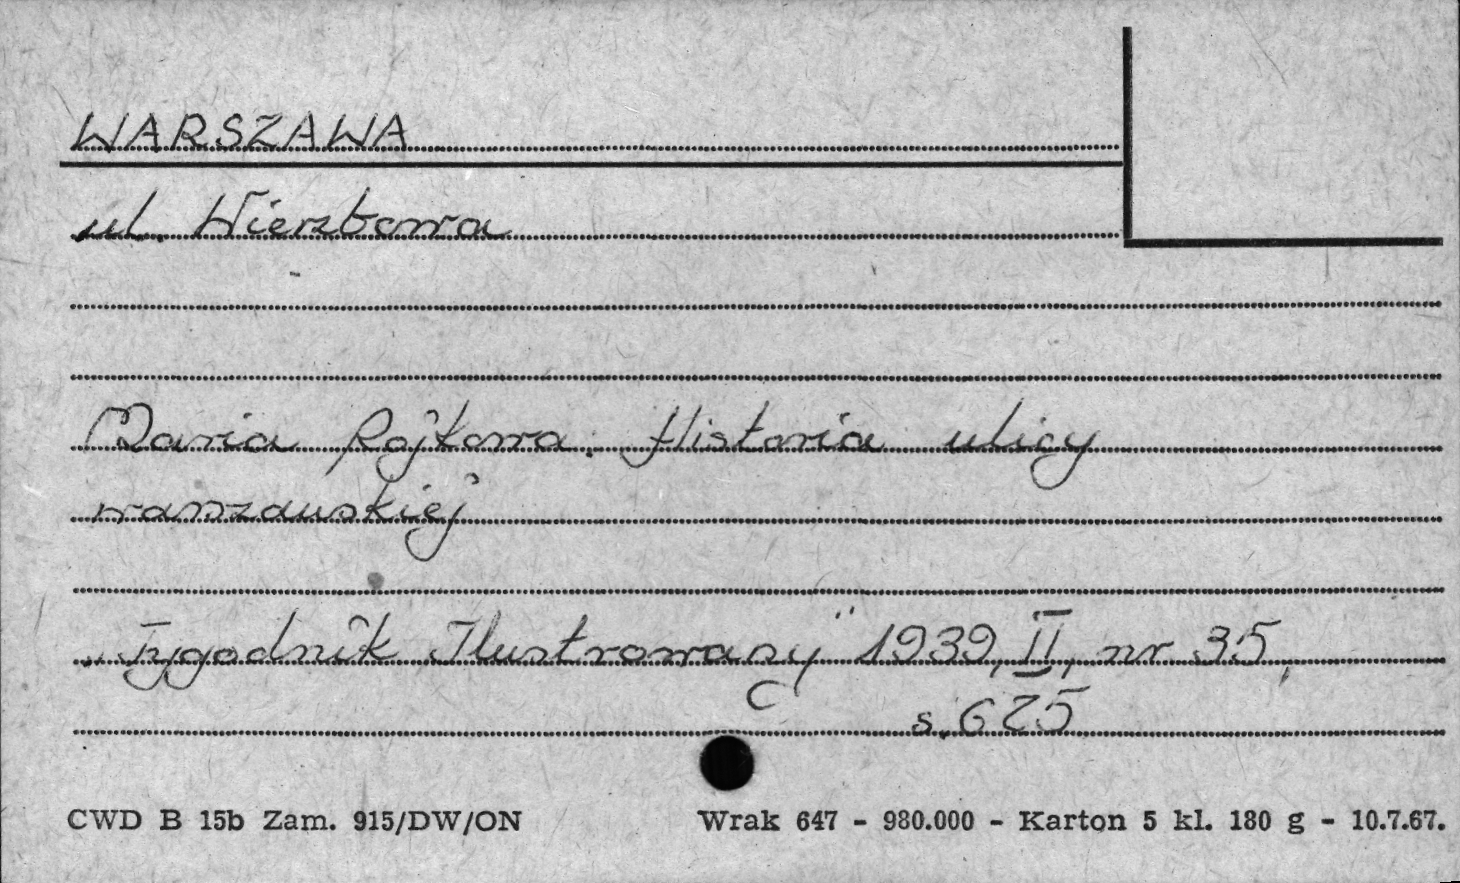 WARSZAWA
ul. Wierzbowa
Maria Rojkowa. Historia ulicy
warszawskiej
„Tygodnik Ilustrowany" 1939, II, nr 35,
s. 675
CWD B 15b Zam. 915/DW/ON Wrak 647 - 980.000 - Karton 5 kl. 180 g - 10.7.67.